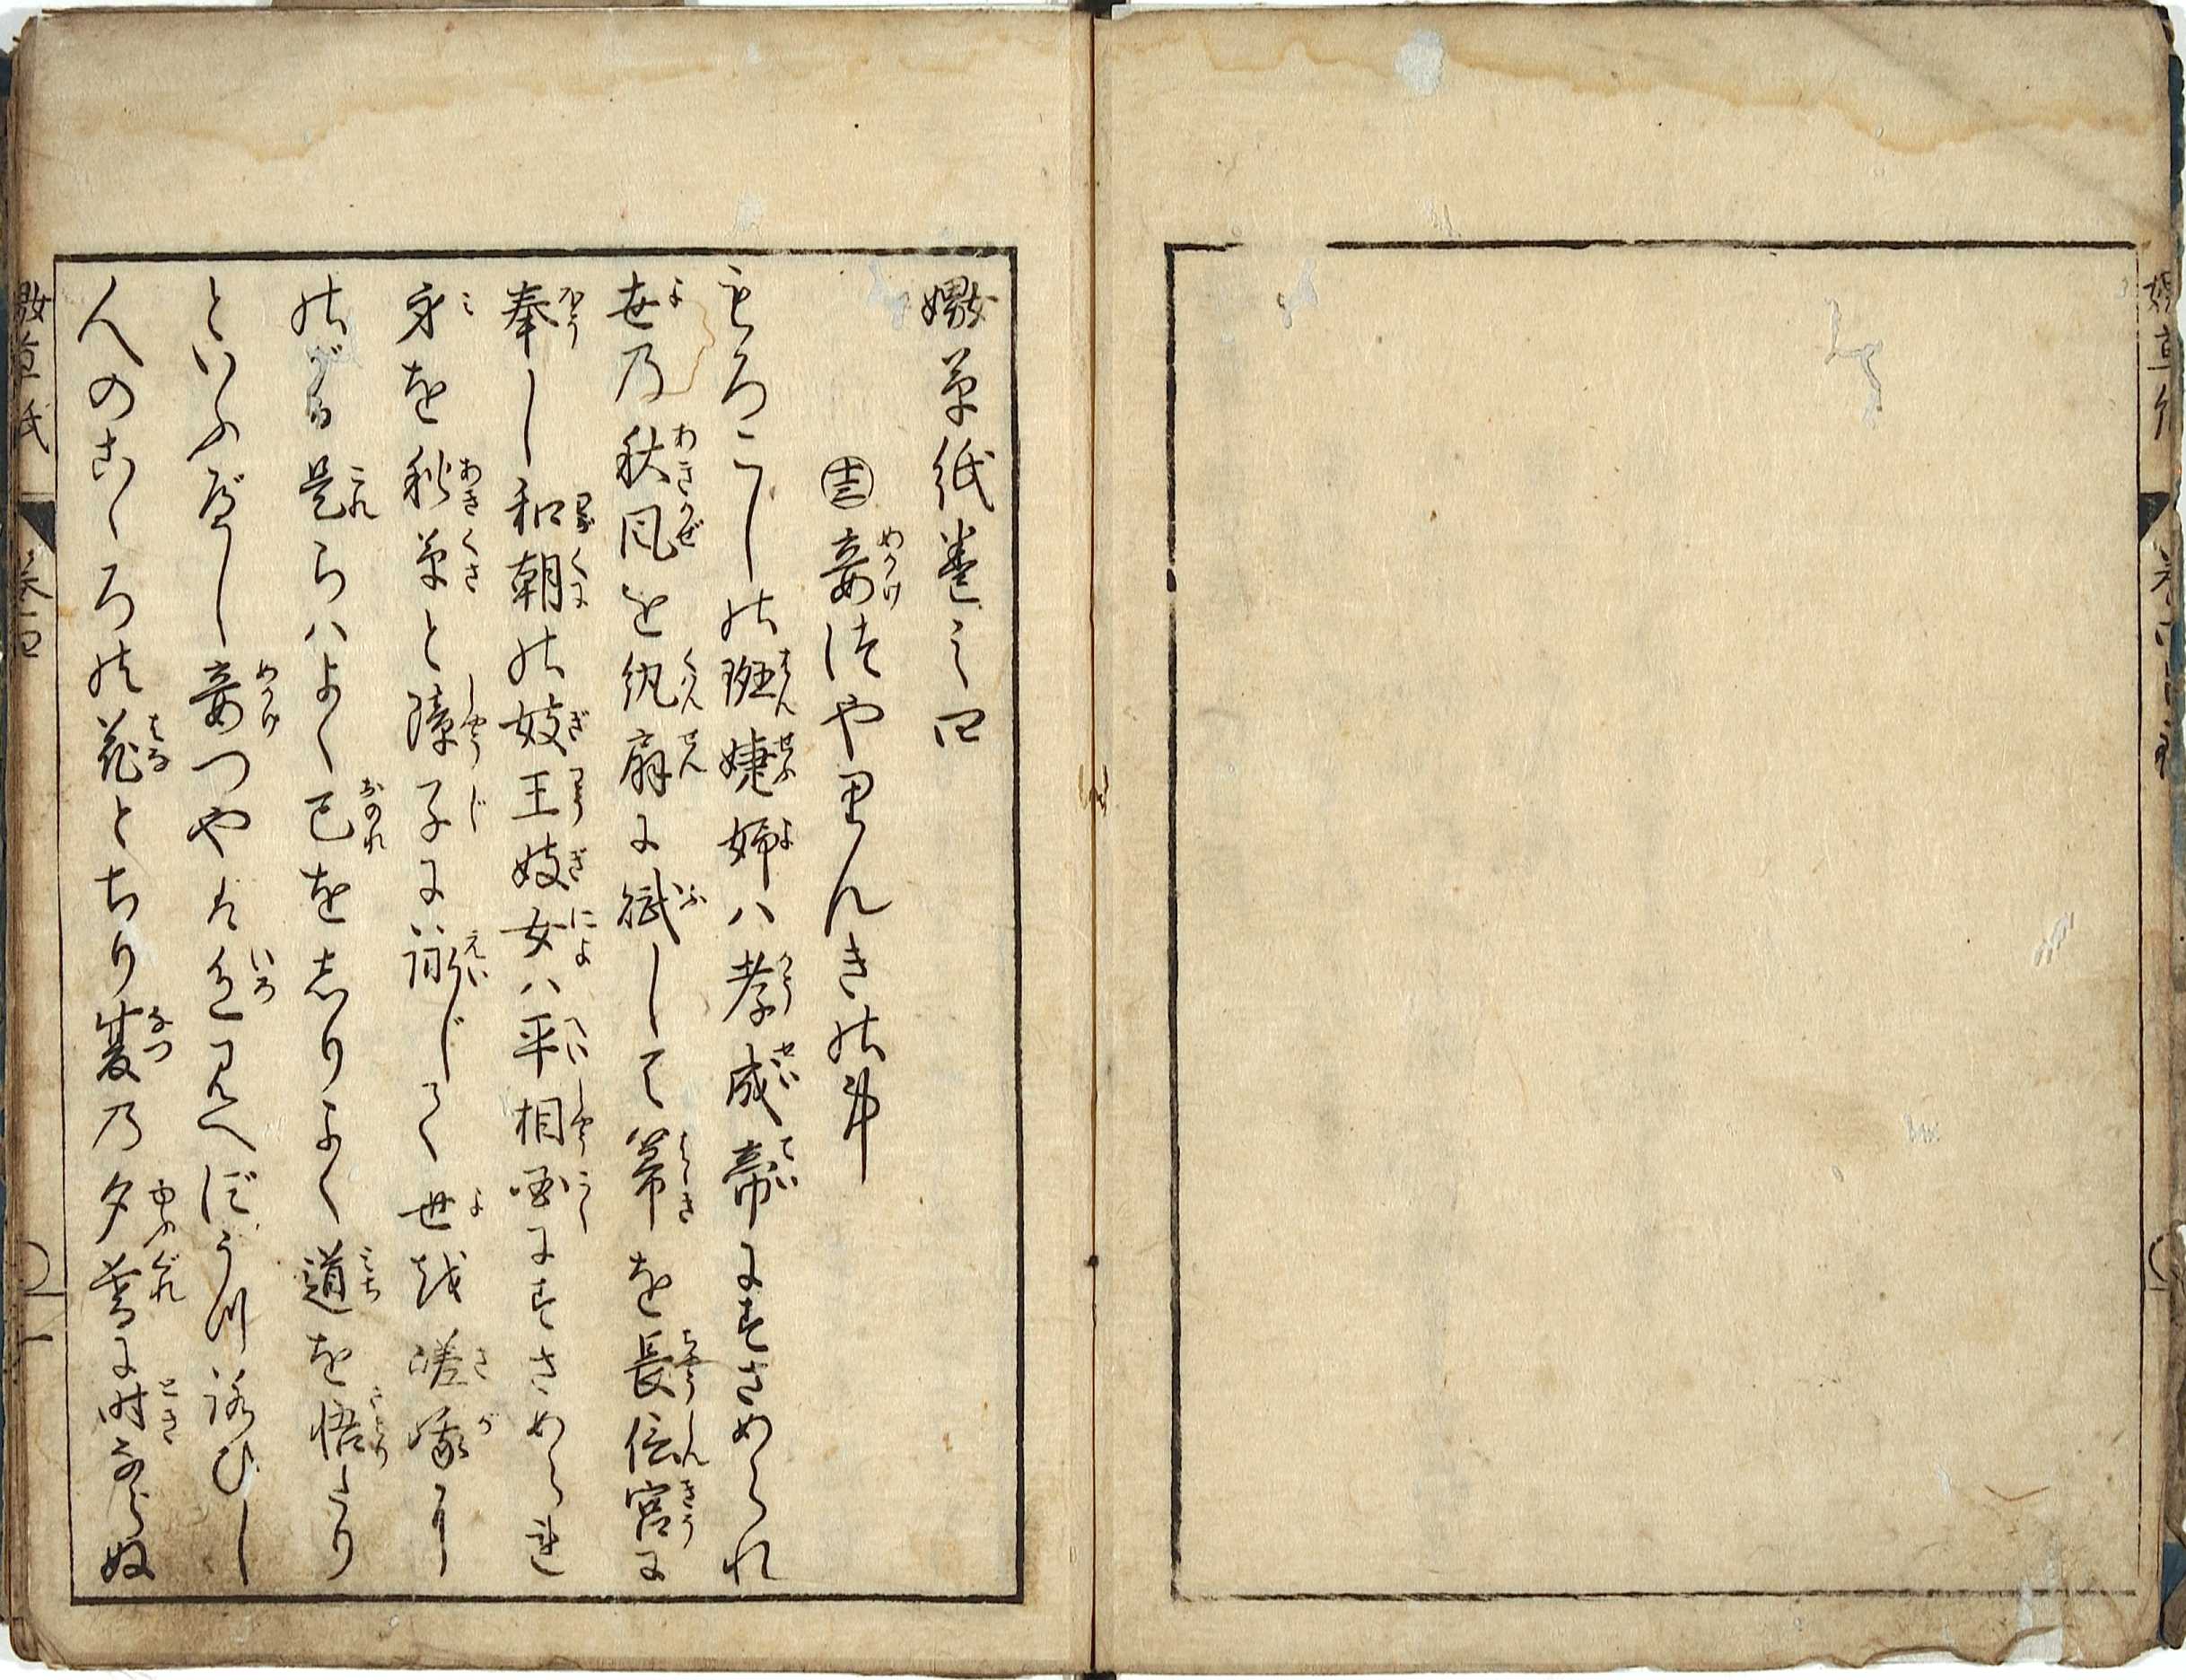 嫐草紙巻之四
㊉三 妾つやりんきの事
もろこしの班婕妤ハ孝成帝にすさめられ
世乃秋風を紈扇に賦して箒を長信宮に
奉し和朝の妓王妓女ハ平相国にすさめられ
身を秋草と障子に詠じて世越嵯峨に
のがる是らハよく己を志りよく道を悟たり
といふべし妾つやは色見へでうつろひし
人のこゝろの花とちり夏乃夕暮に時ならぬ